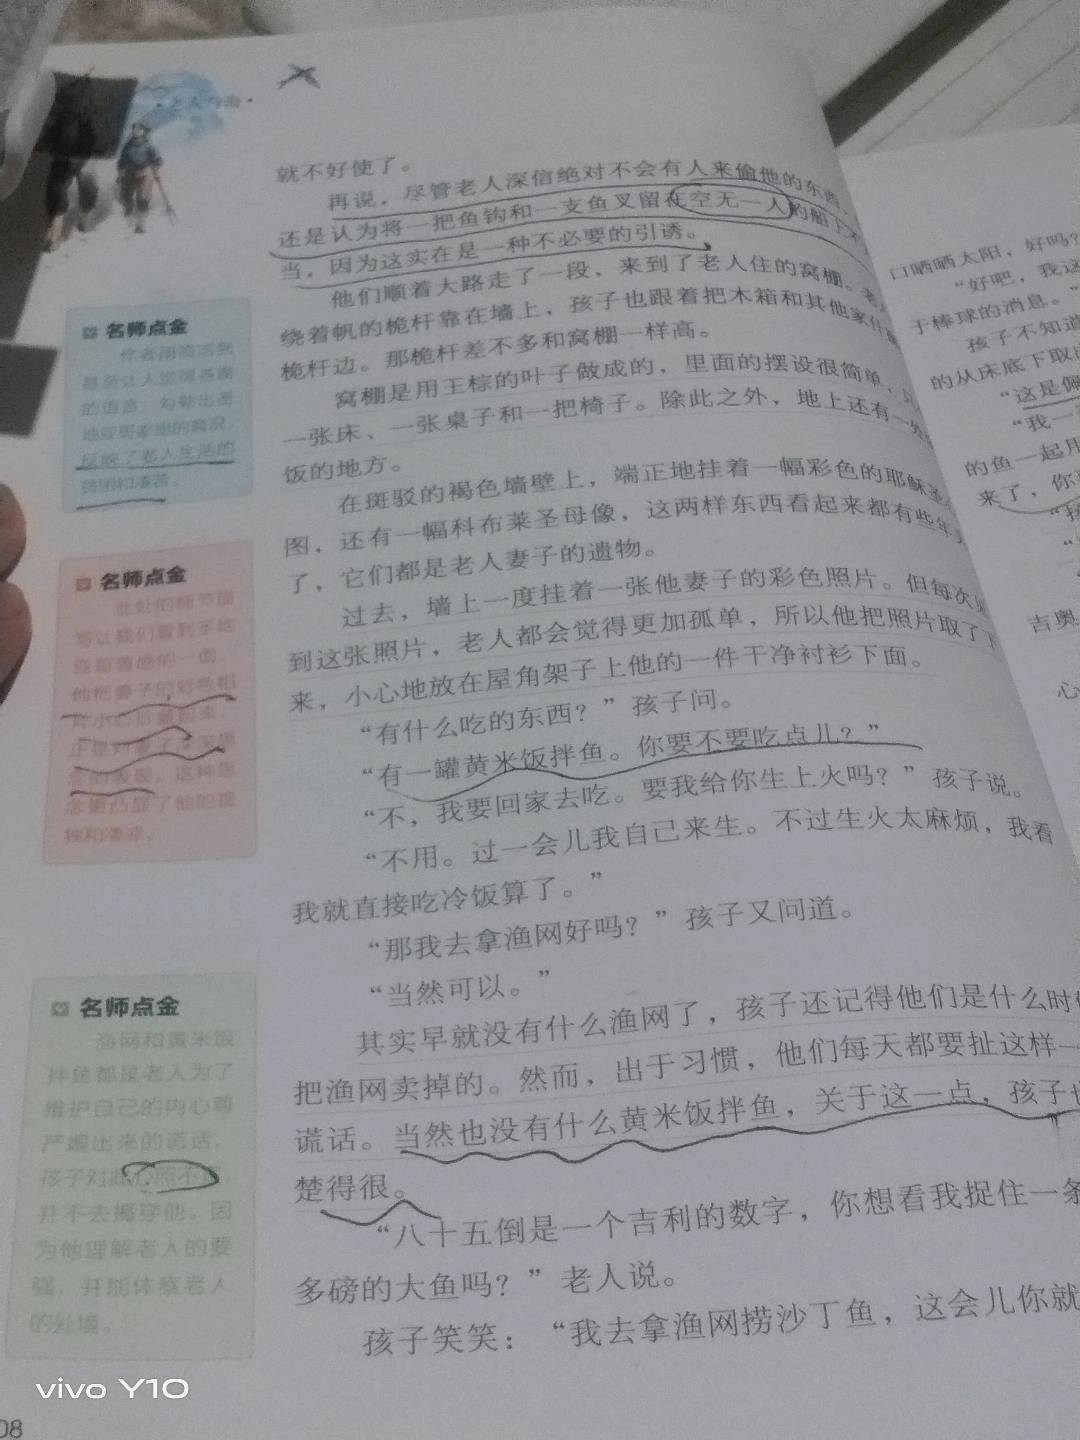 ·老人与海·
就不好使了。
再说，尽管老人深信绝对不会有人来偷他的东西，
还是认为将一把鱼钩和一支鱼叉留在空无一人的船上不
当，因为这实在是一种不必要的引诱。
他们顺着大路走了一段，来到了老人住的窝棚。老
绕着帆的桅杆靠在墙上，孩子也跟着把木箱和其他家什
桅杆边。那桅杆差不多和窝棚一样高。
窝棚是用王棕的叶子做成的，里面的摆设很简单，
一张床、一张桌子和一把椅子。除此之外，地上还有一处
饭的地方。
在斑驳的褐色墙壁上，端正地挂着一幅彩色的耶稣圣
图，还有一幅科布莱圣母像，这两样东西看起来都有些年
了，它们都是老人妻子的遗物。
过去，墙上一度挂着一张他妻子的彩色照片。但每次
到这张照片，老人都会觉得更加孤单，所以他把照片取了下
来，小心地放在屋角架子上他的一件干净衬衫下面。
“有什么吃的东西？”孩子问。
“有一罐黄米饭拌鱼。你要不要吃点儿？”
“不，我要回家去吃。要我给你生上火吗？”孩子说。
“不用。过一会儿我自己来生。不过生火太麻烦，我看
我就直接吃冷饭算了。”
“那我去拿渔网好吗？”孩子又问道。
“当然可以。”
其实早就没有什么渔网了，孩子还记得他们是什么时
把渔网卖掉的。然而，出于习惯，他们每天都要扯这样一
谎话。当然也没有什么黄米饭拌鱼，关于这一点，孩子也
楚得很。
“八十五倒是一个吉利的数字，你想看我捉住一条
多磅的大鱼吗？”老人说。
孩子笑笑：“我去拿渔网捞沙丁鱼，这会儿你就
名师点金
作者用简洁到
甚至让人觉得吝啬
的语言，勾勒出圣
地亚哥家里的情况，
反映了老人生活的
贫困和凄苦。
名师点金
此处的细节描
写让我们看到圣地
亚哥善感的一面，
他把妻子的彩色相
片小心珍藏起来，
正是对妻子深深思
念的表现。这种思
念更凸显了他的孤
独和凄凉。
名师点金
渔网和黄米饭
拌鱼都是老人为了
维护自己的内心尊
严编出来的谎话，
孩子对此心照不宣，
并不去揭穿他。因
为他理解老人的要
强，并能体察老人
的处境。
08
口晒晒太阳，好吗？
“好吧，我这
于棒球的消息。”
孩子不知道
的从床底下取
“这是佩
“我一
的鱼一起用
来了，你
吉奥
心
vivo Y10